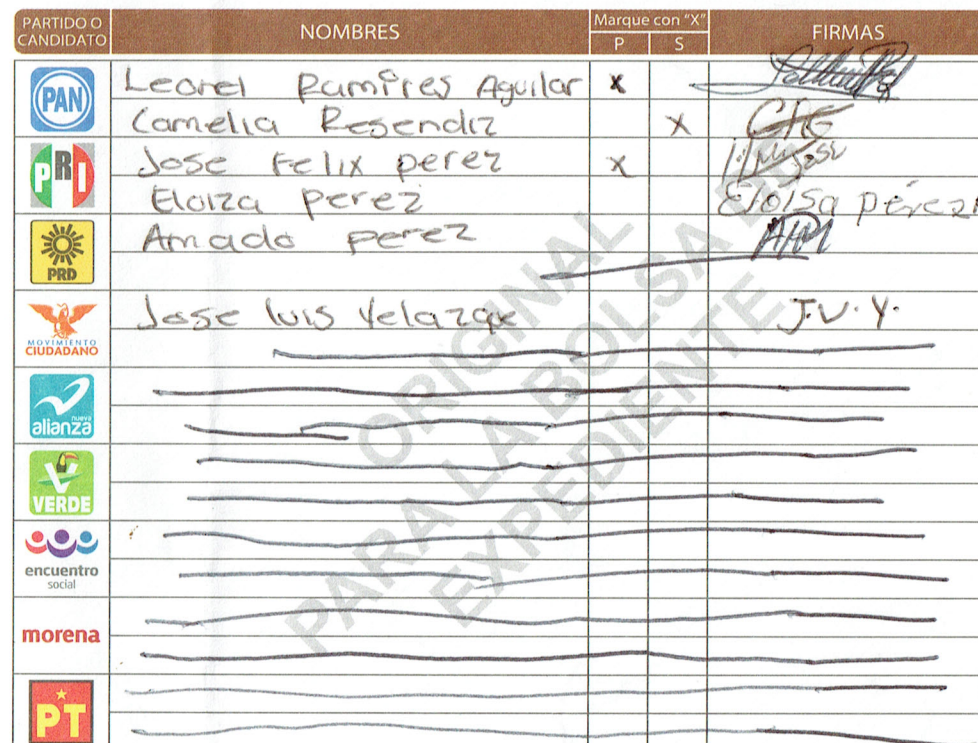 PARTIDO O CANDIDATO NOMBRES Marque con "X" P S FIRMAS
PAN Leonel Ramires Aguilar X
Camelia Resendiz X
PRI Jose Felix perez X
Eloiza perez Eloisa pérez
PRD Amado perez
MOVIMIENTO CIUDADANO Jose luis Velazqe J.V.Y.
nueva alianza
VERDE
encuentro social
morena
PT
ORIGINAL
PARA LA BOLSA DE
EXPEDIENTE